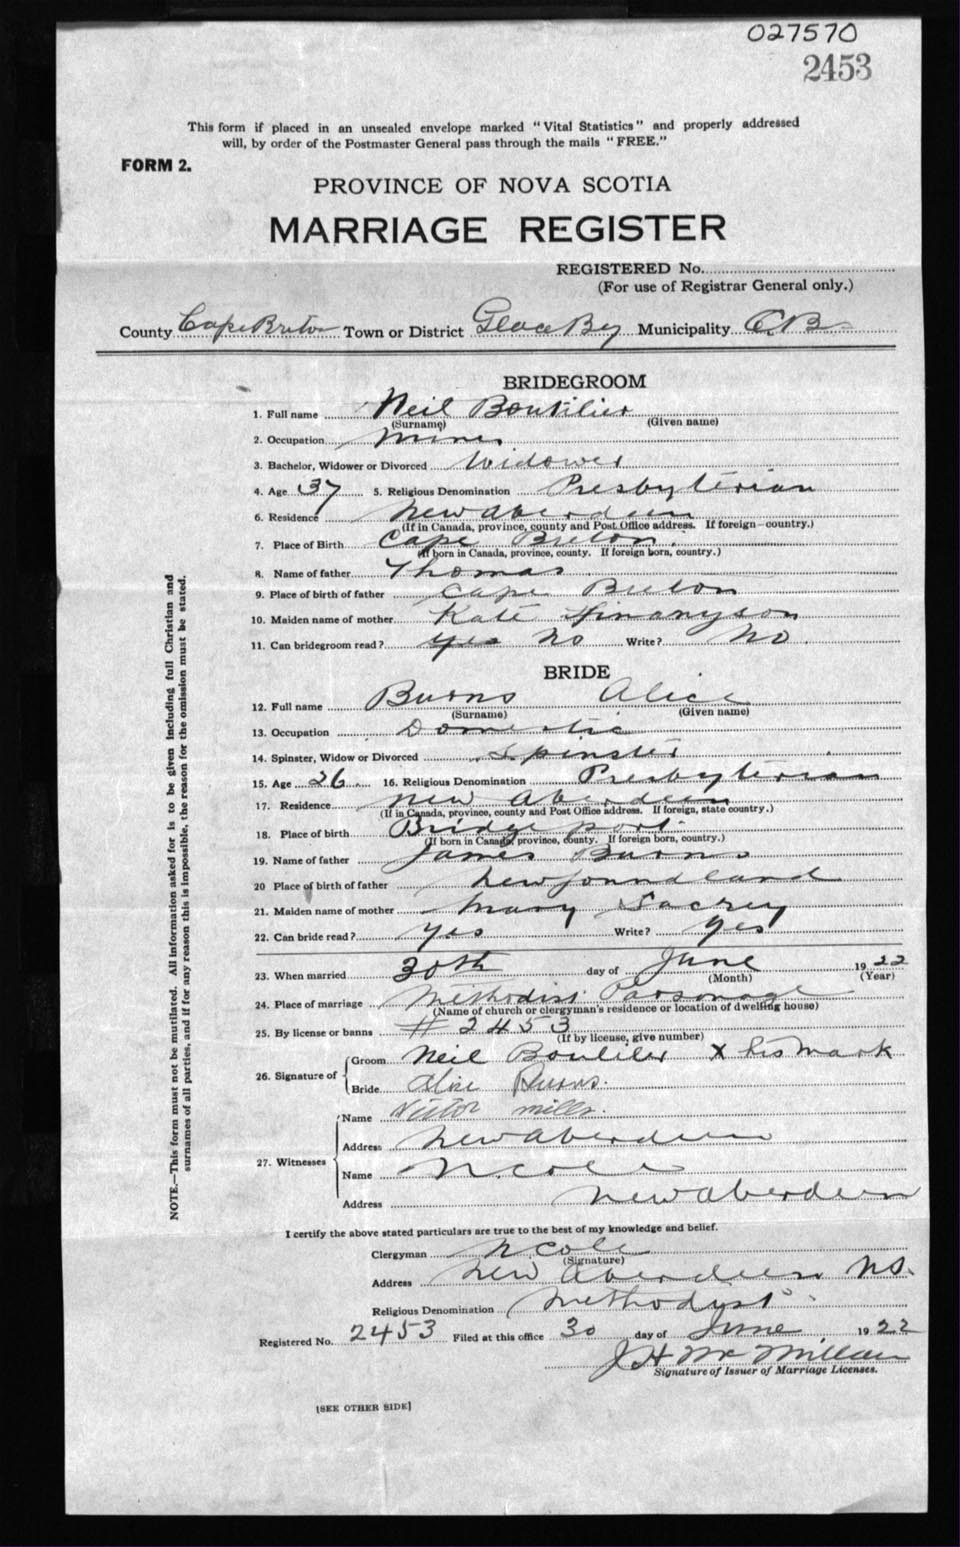 027570
2453
This form if placed in an unsealed envelope marked "Vital Statistics" and properly addressed
will, by order of the Postmaster General pass through the mails "FREE."
FORM 2.
PROVINCE OF NOVA SCOTIA
MARRIAGE REGISTER
REGISTERED No.
(For use of Registrar General only.)
County Cape Breton Town or District Glace Bay Municipality C.B.
BRIDEGROOM
1. Full name Neil Boutilier
(Surname) (Given name)
2. Occupation miner
3. Bachelor, Widower or Divorced Widower
4. Age 37 5. Religious Denomination Presbyterian
6. Residence New Aberdeen
(If in Canada, province, county and Post Office address. If foreign—country.)
7. Place of Birth Cape Breton
(If born in Canada, province, county. If foreign born, country.)
8. Name of father Thomas
9. Place of birth of father Cape Breton
10. Maiden name of mother Kate
11. Can bridegroom read? yes No Write? No
BRIDE
12. Full name Burns Alice
(Surname) (Given name)
13. Occupation Domestic
14. Spinster, Widow or Divorced Spinster
15. Age 26 16. Religious Denomination Presbyterian
17. Residence New Aberdeen
(If in Canada, province, county and Post Office address. If foreign, state country.)
18. Place of birth Bridgeport
(If born in Canada, province, county. If foreign born, country.)
19. Name of father James Burns
20 Place of birth of father Newfoundland
21. Maiden name of mother Mary Sacrey
22. Can bride read? Yes Write? Yes
23. When married 30th day of June 1922
(Month) (Year)
24. Place of marriage Methodist Parsonage
(Name of church or clergyman's residence or location of dwelling house)
25. By license or banns # 2453
(If by license, give number)
26. Signature of
Groom Neil Boutilier X his mark
Bride Alice Burns.
27. Witnesses
Name Victor Mills.
Address New Aberdeen
Name N. Cole
Address New Aberdeen
I certify the above stated particulars are true to the best of my knowledge and belief.
Clergyman N Cole
(Signature)
Address New Aberdeen N.S.
Religious Denomination Methodist
Registered No. 2453 Filed at this office 30 day of June 1922
J H McMillan
Signature of Issuer of Marriage Licenses.
[SEE OTHER SIDE]
NOTE.—This form must not be mutilated. All information asked for is to be given including full Christian and
surnames of all parties, and if for any reason this is impossible, the reason for the omission must be stated.